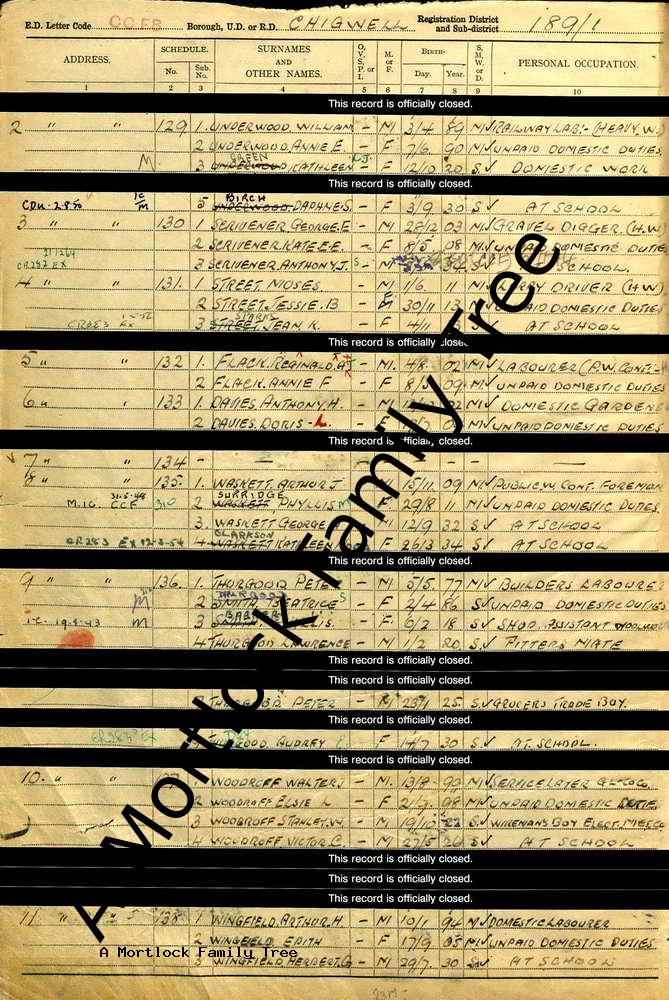 E.D. Letter Code CCFB Borough, U.D. or R.D. CHIGWELL Registration District and Sub-district 189/1
ADDRESS. SCHEDULE. No. Sub. No. SURNAMES AND OTHER NAMES. O. V. S. P. or I. M. or F. BIRTH- Day. Year. S. M. W. or D. PERSONAL OCCUPATION.
1 2 3 4 5 6 7 8 9 10
This record is officially closed.
2 " " 129 1. UNDERWOOD, WILLIAM - M 3/4 89 M RAILWAY LAB:- (HEAVY. W.)
2 UNDERWOOD, ANNIE E. - F 7/6 90 M UNPAID DOMESTIC DUTIES
M 3 UNDERWOOD KATHLEEN - F 12/10 20 S DOMESTIC WORK
This record is officially closed.
BIRCH
5 UNDERWOOD, DAPHNE S. - F 3/9 30 S AT SCHOOL
3 " " 130 1 SCRIVENER GEORGE, E - M 28/12 03 M GRAVEL DIGGER. (H.W)
2 SCRIVENER, KATE E.E. - F 8/5 08 M UNPAID DOMESTIC DUTIE
CR283 EX 3 SCRIVENER, ANTHONY, J. S - M 34 S SCHOOL.
4 " " 131. 1 STREET, MOSES. - M 1/6 11 M DRIVER (H.W)
2 STREET, JESSIE. B - F 30/11 13 DOMESTIC DUTIES
CR283 EX 3 STREET, JEAN, K. - F 4/11 S AT SCHOOL
This record is officially closed.
5 " " 132 1. FLACK, REGINALD. A J - M. 4/8 02 M LABOURER (P.W. CONT:-
2 FLACK, ANNIE F - F 8/ 09 M UNPAID DOMESTIC DUTIES
6 " " 133 1. DAVIES, ANTHONY H. - M DOMESTIC GARDENE
2 DAVIES, DORIS - L. - M UNPAID DOMESTIC DUTIES
This record is officially closed.
7 " " 134 - - - - - -
8 " " 135 1. WASKETT, ARTHUR J 15/11 09 M PUBLIC. W. CONT. FOREMAN
M.16. CCF SURRIDGE
2 WASKETT PHYLLIS F 29/8 11 M UNPAID DOMESTIC DUTIES
3. WASKETT GEORGE 12/9 32 S AT SCHOOL
CLARKSON
CR283 EX 12-3-54 4 WASKETT KATHLEEN F 26/3 34 S AT SCHOOL
This record is officially closed.
9 " " 136. 1. THURGOOD PETER M 5/5 77 M BUILDERS LABOURE
THURGOOD
M 2 SMITH BEATRICE S F 2/4 86 S UNPAID DOMESTIC DUTIES
M 3 - F. 6/2 18 S SHOP. ASSISTANT
4 THURGOOD LAWRENCE - M 1/2 20 S FITTERS MATE
This record is officially closed.
This record is officially closed.
THURGOOD PETER - M 23/1 25. S GROCERS TRADE BOY.
This record is officially closed.
AUDREY - F 17/7 30 S AT. SCHOOL.
This record is officially closed.
10. " " WOODROFF WALTER J - M. 13/8
2 WOODROFF ELSIE L - F 21/9 98 M UNPAID DOMESTIC DUTIE
3 WOODROFF STANLEY, W. - M 19/10 S WIREMAN'S BOY ELECT.
4 WOODROFF VICTOR. C. - M 27/5 26 S AT SCHOOL
This record is officially closed.
This record is officially closed.
This record is officially closed.
11. " " 138 1 WINGFIELD, ARTHUR. H. - M 10/1 94 M DOMESTIC LABOURER
2 WINGFIELD EDITH - F 17/9 M UNPAID DOMESTIC DUTIES.
3 WINGFIELD, HERBERT, G - M 29/7. 30 S AT SCHOOL
A Mortlock Family Tree
A Mortlock Family Tree